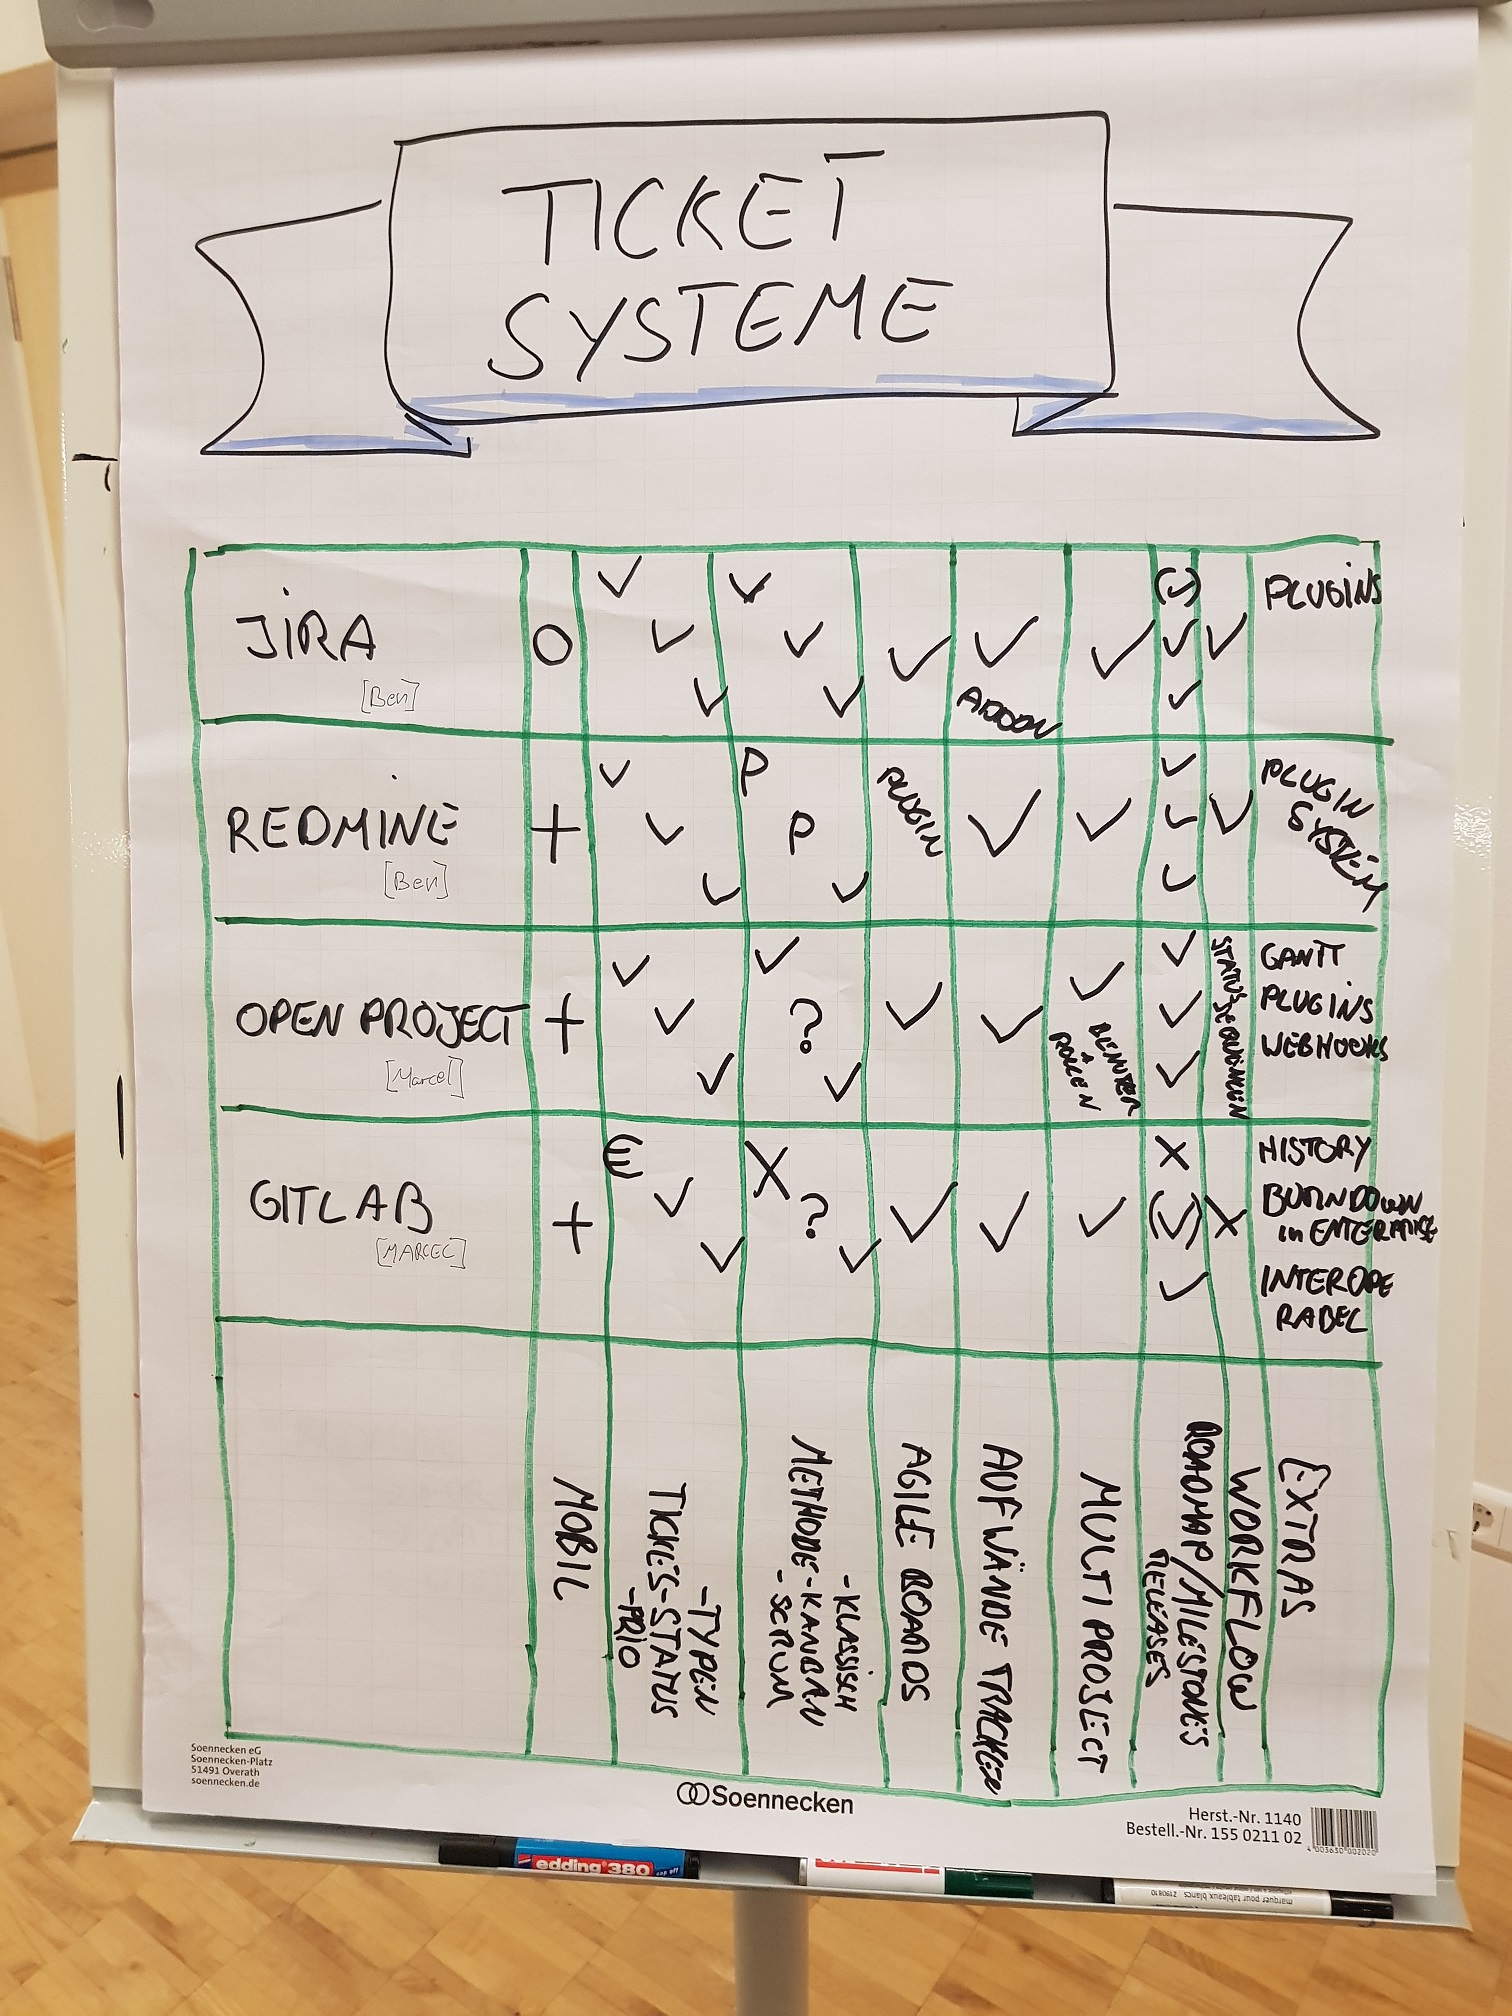 TICKET
SYSTEME
JIRA
[Ben]
O
✓
✓
✓
✓
✓
✓
✓
✓
ADDON
✓
(✓)
✓
✓
✓
PLUGINS
REDMINE
[Ben]
+
✓
✓
✓
P
P
✓
PLUGIN
✓
✓
✓
✓
✓
✓
PLUGIN
SYSTEM
OPEN PROJECT
[Marcel]
+
✓
✓
✓
✓
?
✓
✓
✓
✓
BENUTZER
+
ROLLEN
✓
✓
✓
STATUS
GANTT
PLUGINS
WEBHOOKS
GITLAB
[MARCEL]
+
€
✓
✓
X
?
✓
✓
✓
✓
X
(✓)
✓
X
HISTORY
BURNDOWN
in ENTERPRISE
INTEROPE
RABEL
MOBIL
- TYPEN
TICKES - STATUS
- PRIO
- KLASSISCH
METHODE - KANBAN
- SCRUM
AGILE BOARDS
AUFWÄNDE TRACKEN
MULTI PROJECT
ROADMAP/MILESTONES
RELEASES
WORKFLOW
EXTRAS
Soennecken eG
Soennecken-Platz
51491 Overath
soennecken.de
Soennecken
Herst.-Nr. 1140
Bestell.-Nr. 155 0211 02
4 003630 002020
edding 380
cap off
marqueur pour tableaux blancs